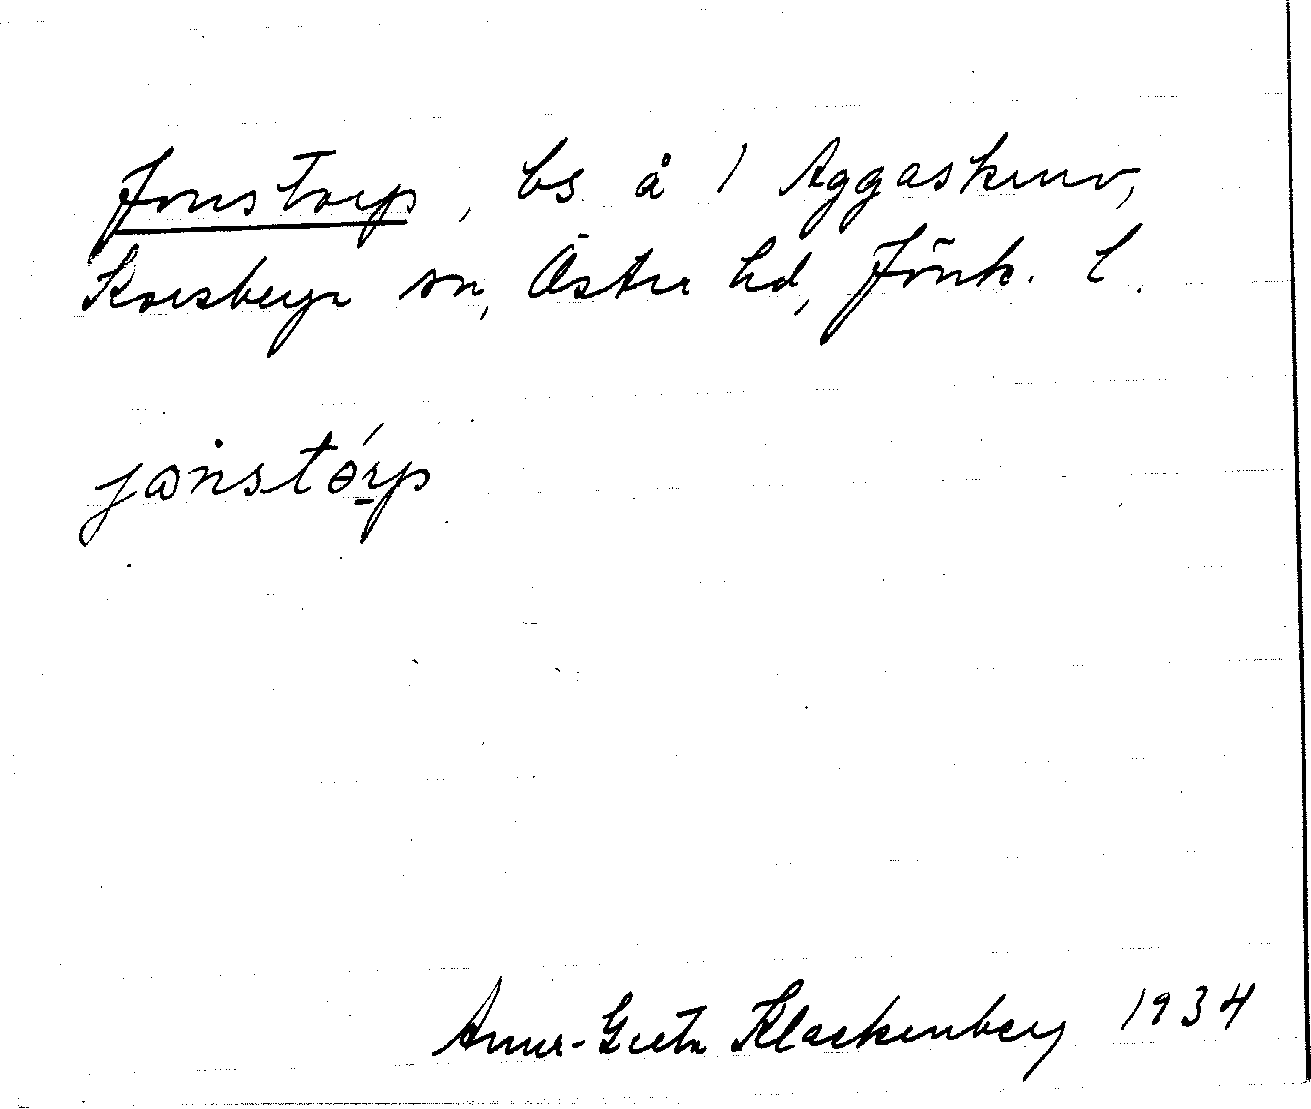 Jonstorp, bs å 1 Aggaskruv,
Korsberga sn, Östra hd, Jönk. l.
jɷnstórp
Anna-Greta Klackenberg 1934